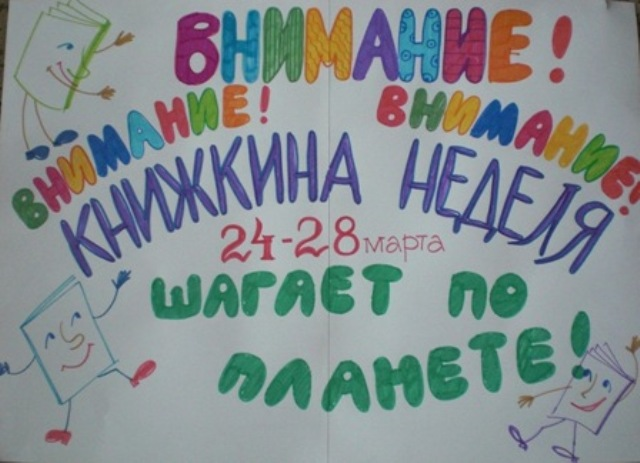 ВНИМАНИЕ!
ВНИМАНИЕ! ВНИМАНИЕ!
КНИЖКИНА НЕДЕЛЯ
24-28 марта
ШАГАЕТ ПО
ПЛАНЕТЕ!